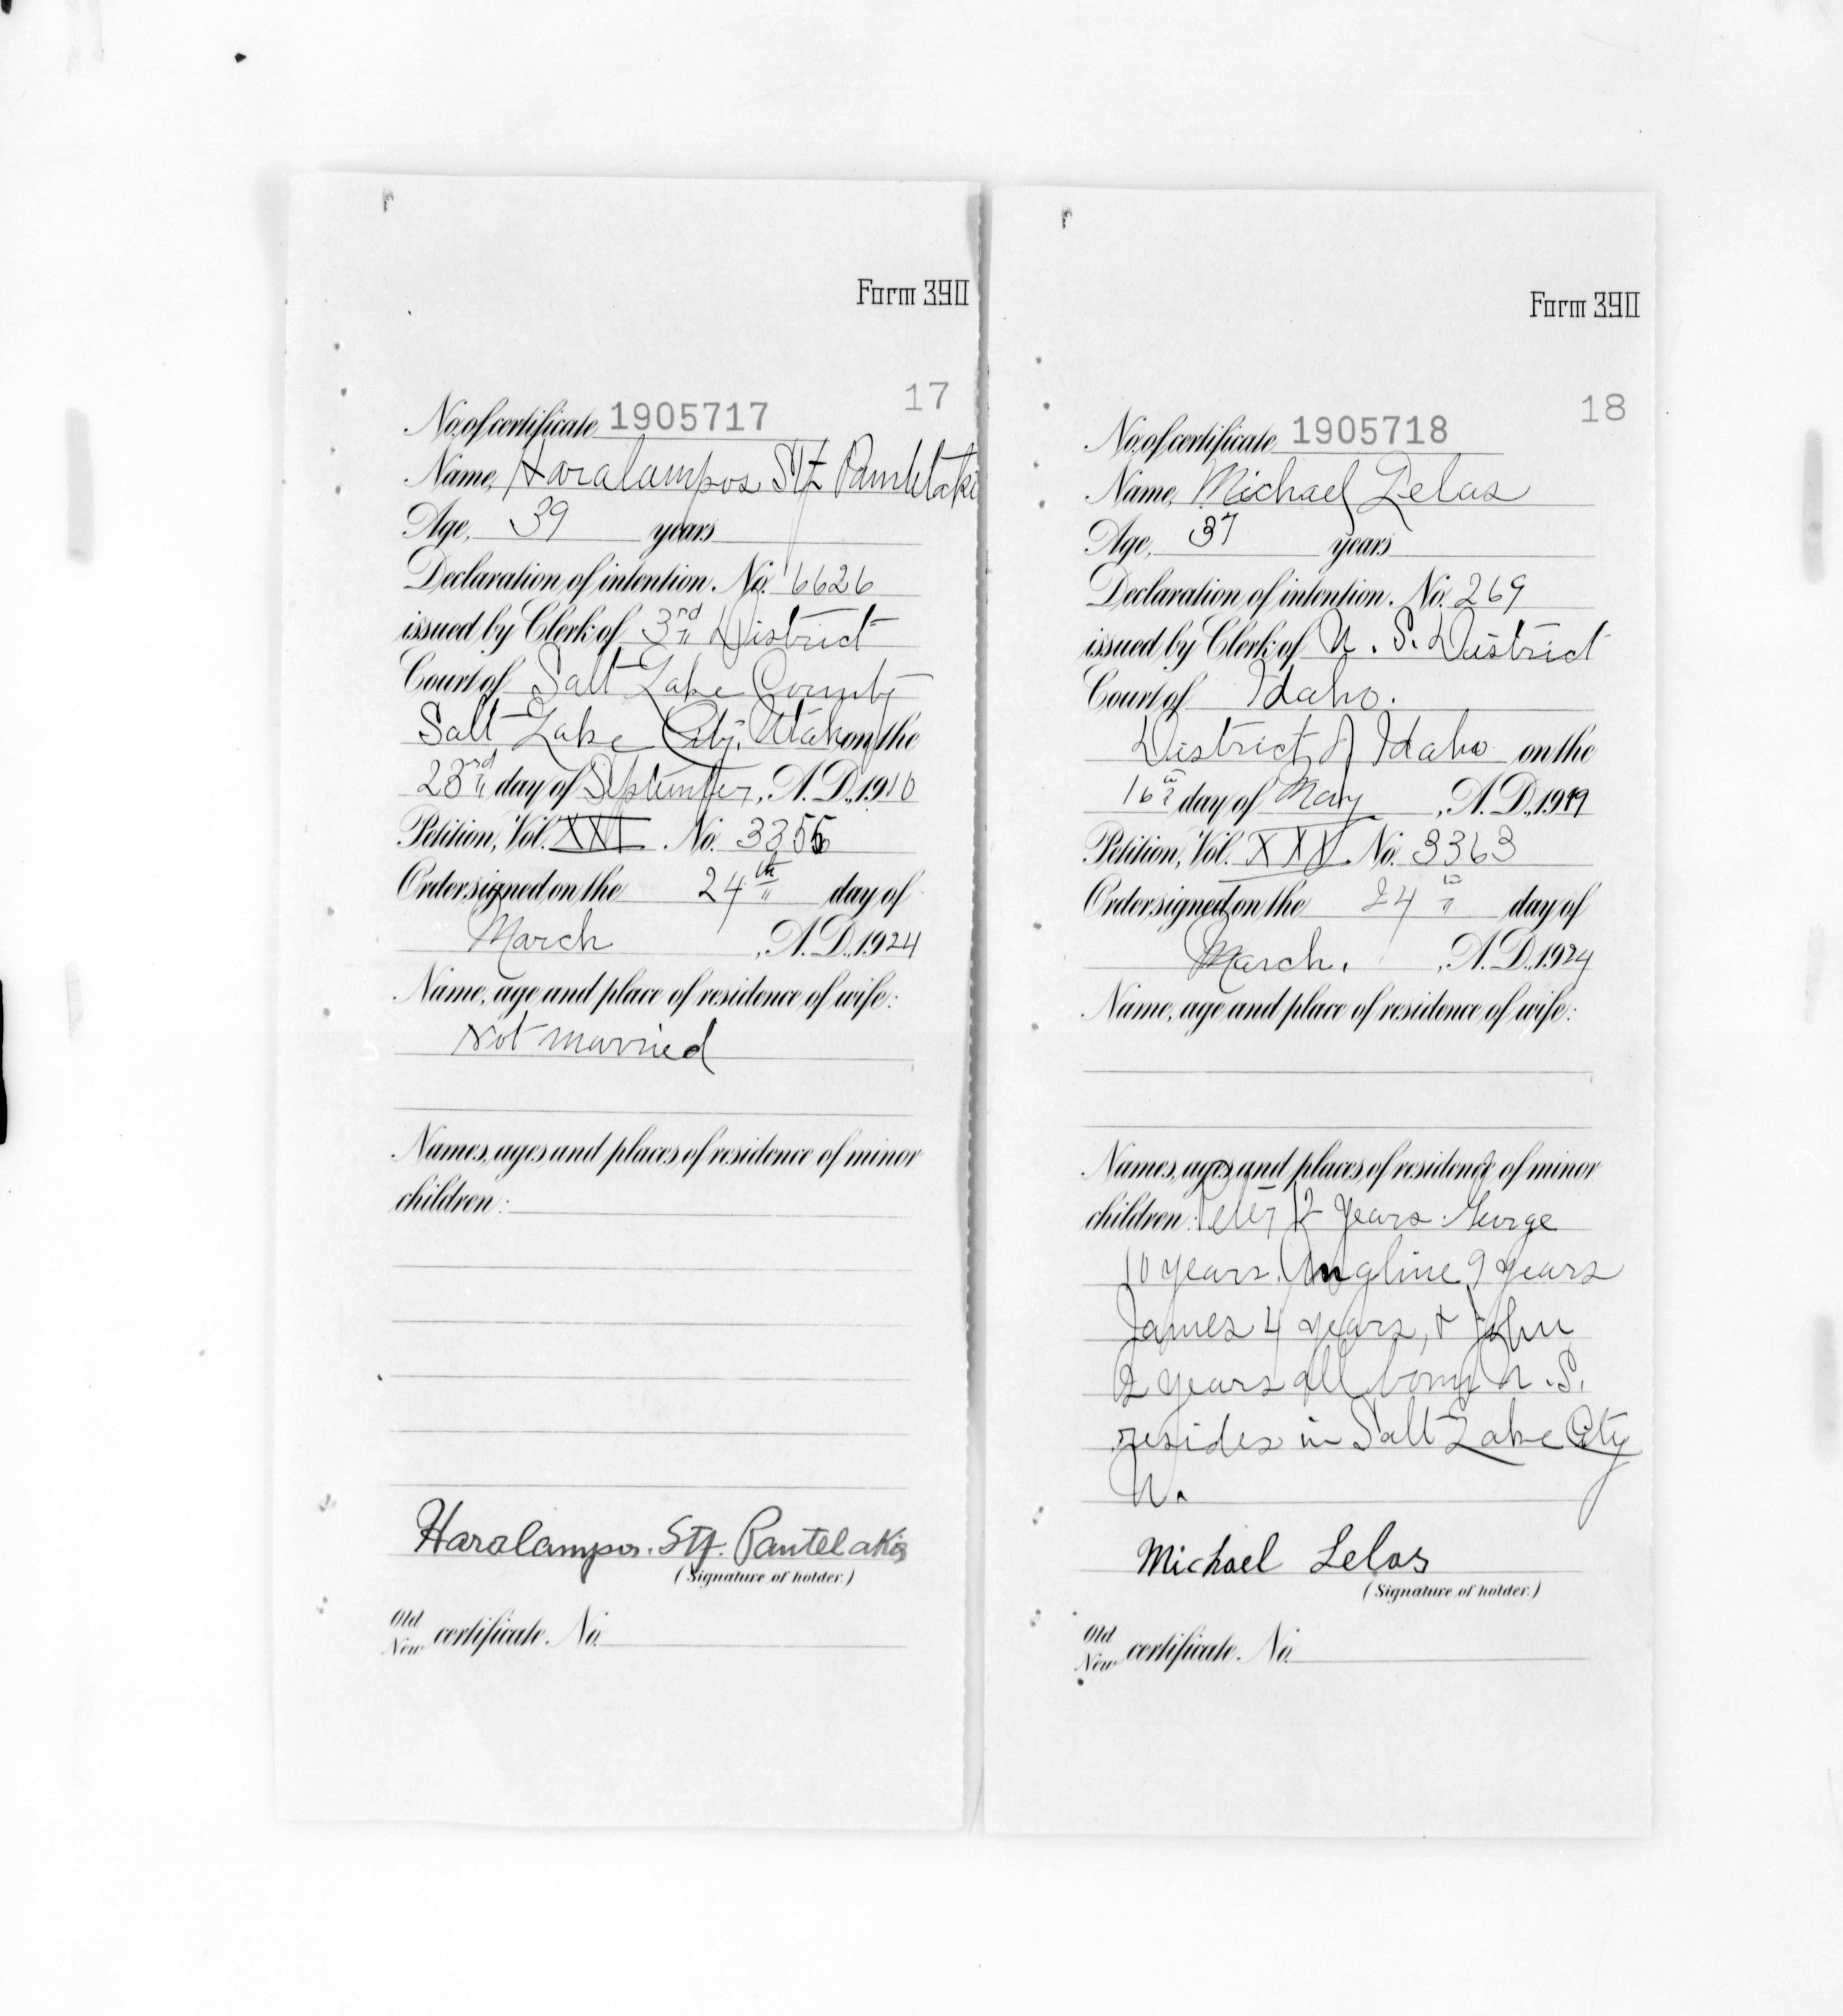 Form 390
17
No. of certificate 1905717
Name, Haralampos Stf Pantelakis
Age, 39 years
Declaration of intention. No. 6626
issued by Clerk of 3rd District
Court of Salt Lake County
Salt Lake City, Utah on the
23rd day of September, A.D., 1910
Petition, Vol. XXI No. 3356
Order signed on the 24th day of
March, A.D., 1924
Name, age and place of residence of wife:
Not married
Names, ages and places of residence of minor
children:
Haralampos. Stf. Pantelakis
(Signature of holder.)
Old
New certificate. No.
Form 390
18
No. of certificate 1905718
Name, Michael Lelas
Age, 37 years
Declaration of intention. No. 269
issued by Clerk of U. S. District
Court of Idaho.
District of Idaho on the
16th day of May, A.D., 1919
Petition, Vol. XXV. No. 3363
Order signed on the 24th day of
March., A.D., 1924
Name, age and place of residence of wife:
Names, ages and places of residence of minor
children: Peter 12 years George
10 years. Angline 9 years
James 4 years, & John
2 years all born U.S.
resides in Salt Lake City
U.
Michael Lelas
(Signature of holder.)
Old
New certificate. No.